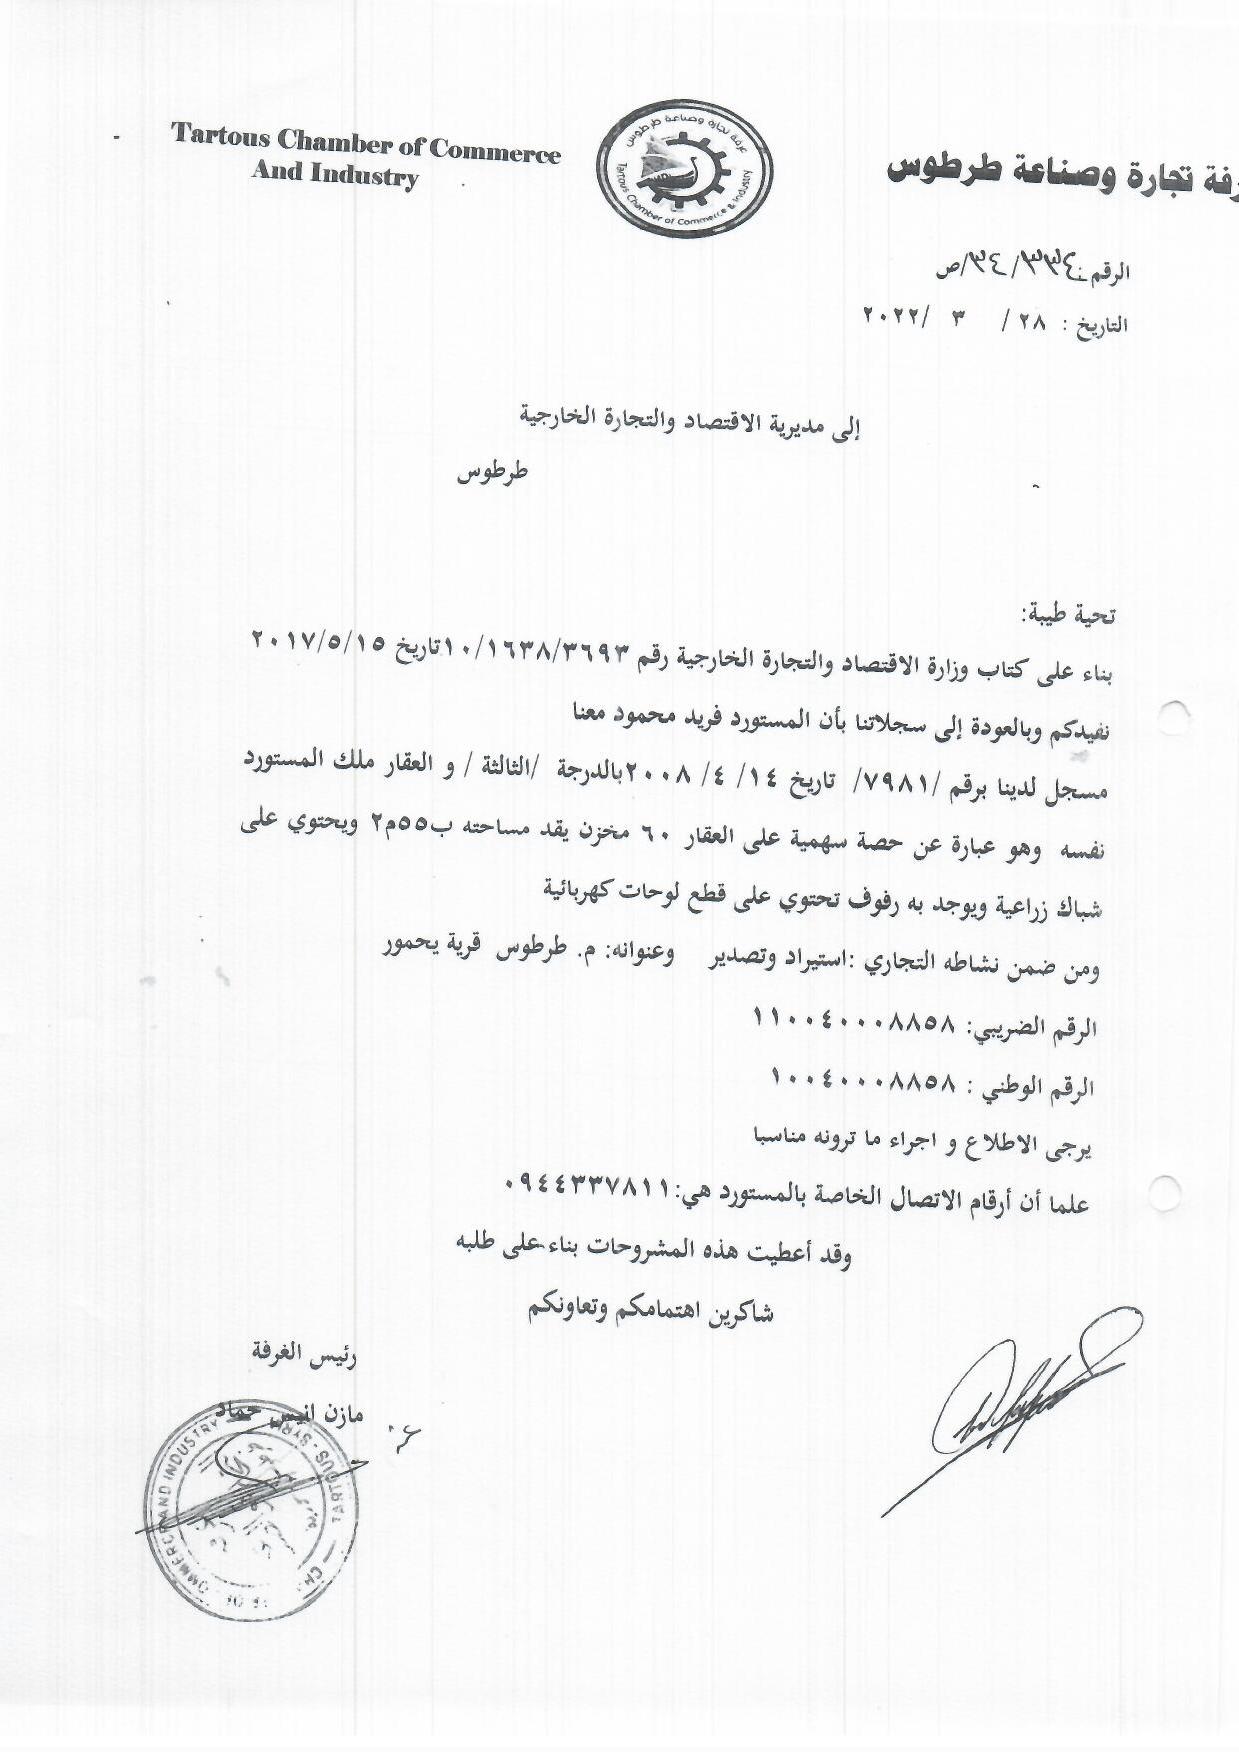 Tartous Chamber of Commerce
And Industry
غرفة تجارة وصناعة طرطوس
Tartous Chamber of Commerce & Industry
رفة تجارة وصناعة طرطوس
الرقم: ٣٤/٣٣٤/ص
التاريخ : ٢٨ / ٣ /٢٠٢٢
إلى مديرية الاقتصاد والتجارة الخارجية
طرطوس
تحية طيبة:
بناء على كتاب وزارة الاقتصاد والتجارة الخارجية رقم ١٠/١٦٣٨/٣٦٩٣تاريخ ٢٠١٧/٥/١٥
نفيدكم وبالعودة إلى سجلاتنا بأن المستورد فريد محمود معنا
مسجل لدينا برقم /٧٩٨١/ تاريخ ١٤ /٤ /٢٠٠٨بالدرجة /الثالثة / و العقار ملك المستورد
نفسه وهو عبارة عن حصة سهمية على العقار ٦٠ مخزن يقد مساحته ب٥٥م٢ ويحتوي على
شباك زراعية ويوجد به رفوف تحتوي على قطع لوحات كهربائية
ومن ضمن نشاطه التجاري :استيراد وتصدير وعنوانه: م. طرطوس قرية يحمور
الرقم الضريبي: ١١٠٠٤٠٠٠٨٨٥٨
الرقم الوطني : ١٠٠٤٠٠٠٨٨٥٨
يرجى الاطلاع و اجراء ما ترونه مناسبا
علما أن أرقام الاتصال الخاصة بالمستورد هي:٠٩٤٤٣٣٧٨١١
وقد أعطيت هذه المشروحات بناء على طلبه
شاكرين اهتمامكم وتعاونكم
رئيس الغرفة
مازن انيس حماد
AND INDUSTRY
TARTOUS - SYR